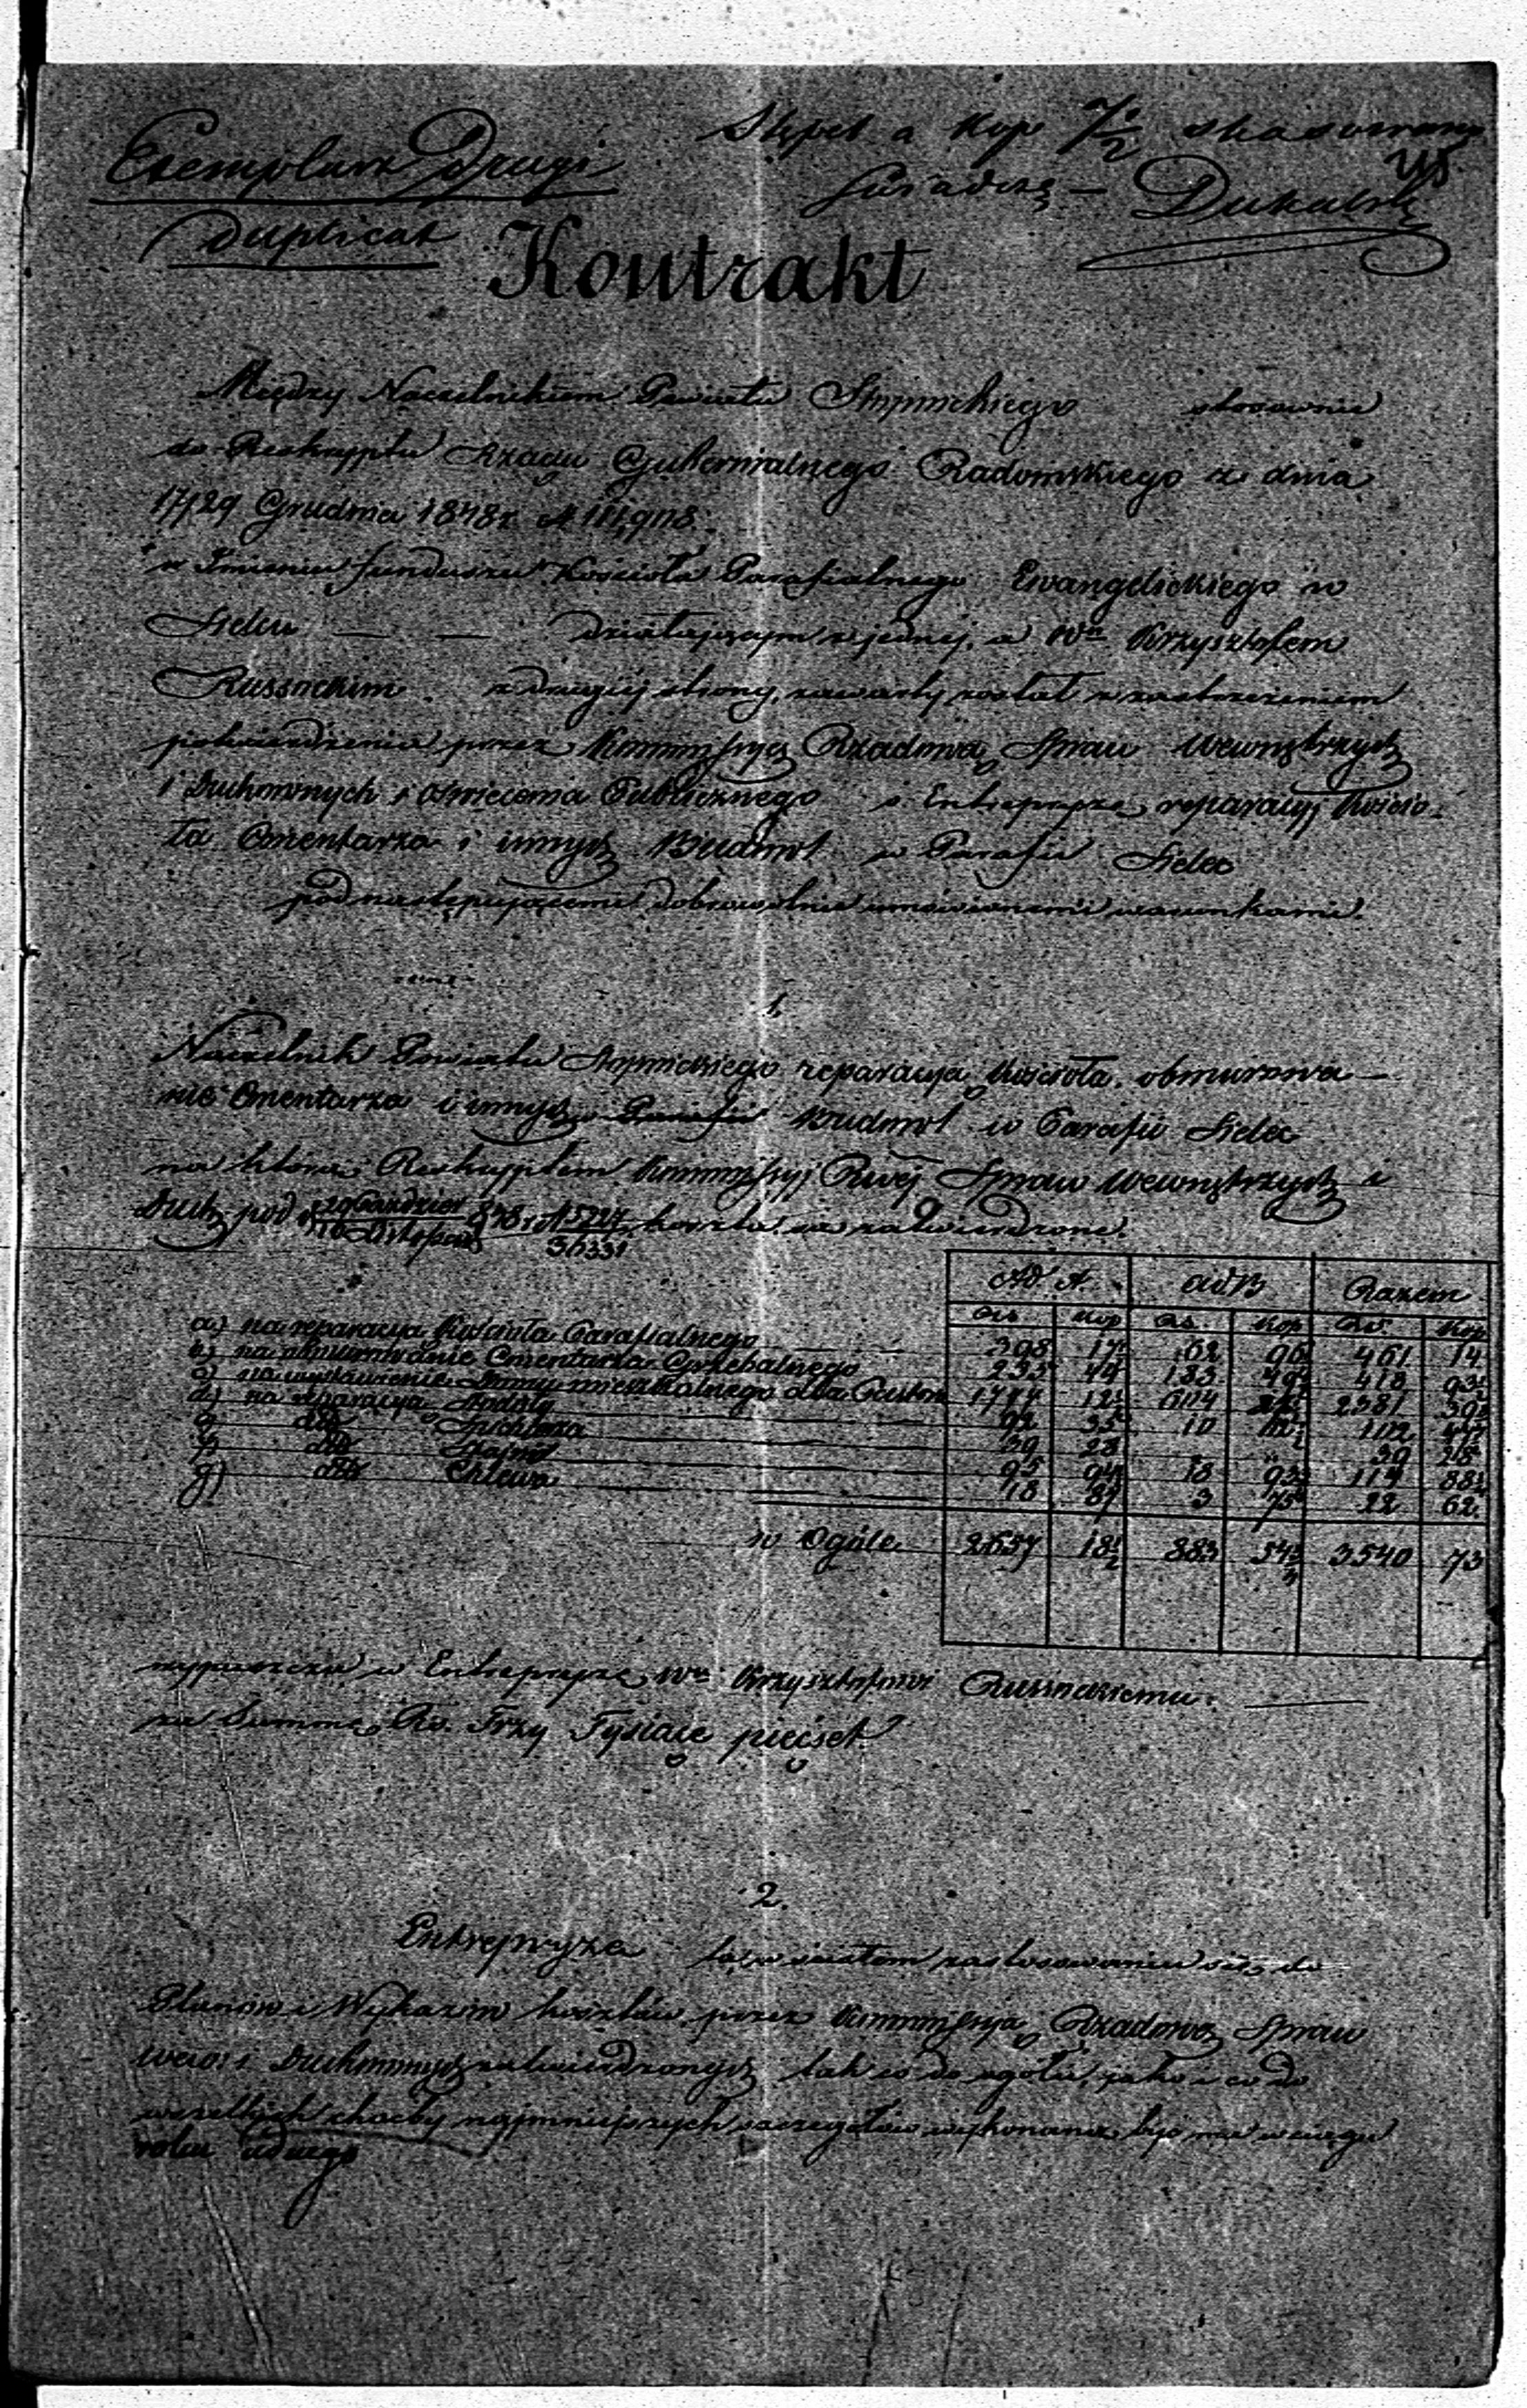 Exemplarz Drugi
Duplicat
Stępel a kop 7½ skasowano
Świadczę — Dukalski
Kontrakt
Między Naczelnikiem Powiatu Stopnickiego stosownie
do Reskryptu Rządu Gubernialnego Radomskiego z dnia
17/29 Grudnia 1848 r. N
w Imieniu funduszu Kościoła Parafialnego Ewangelickiego w
Sielcu — — działającym z jednej, a Wm Krzysztofem
Russockim z drugiej strony, zawarty został z zastrzeżeniem
potwierdzenia przez Kommissyą Rządową Spraw Wewnętrznych
i Duchownych i Oświecenia Publicznego o Entrepryzę reparacyj Kościo-
ła Cmentarza i innych Budowl w Parafii Sielec
pod następującemi dobrowolnie umówionemi warunkami.
1.
Naczelnik Powiatu Stopnickiego reparacyą Kościoła obmurowa-
nie Cmentarza i innych Parafii Budowl w Parafii Sielec
na którą Reskryptem Kommissyj Rwej Spraw Wewnętrznych i
Duch. pod 848 r. koszta są zatwierdzone.
Ad A. ad B Razem
Rs. Kop Rs. Kop Rs. Kop
a) na reparacyą Kościoła Parafialnego 398 17 62 96 461 14
b) na obmurowanie Cmentarza Grzebalnego 235 44 183 49 418 93
c) na wystawienie Domu mieszkalnego dla Pastora 1777 12 604 2381
d) na reparacyą Stodoły 92 10 102
e) dto Spichrza 39 28 39 28
f) dto Stajni 95 94 18 93 114 88
g) dto Chlewa 18 87 3 75 22 62
w Ogóle 2657 18½ 883 54¾ 3540 73
wypuszcza w Entrepryzę Wmu Krzysztofowi Russockiemu. —
za Summę Rs. Trzy Tysiące pięćset
2.
Entrepryza zastosowaniu się do
Planów i Wykazów kosztów przez Kommissyą Rządową Spraw
Wew: i Duchownych zatwierdzonych tak co do ogółu, jako i co do
wszelkich choćby najmniejszych szczegółów wykonaną być ma w ciągu
roku